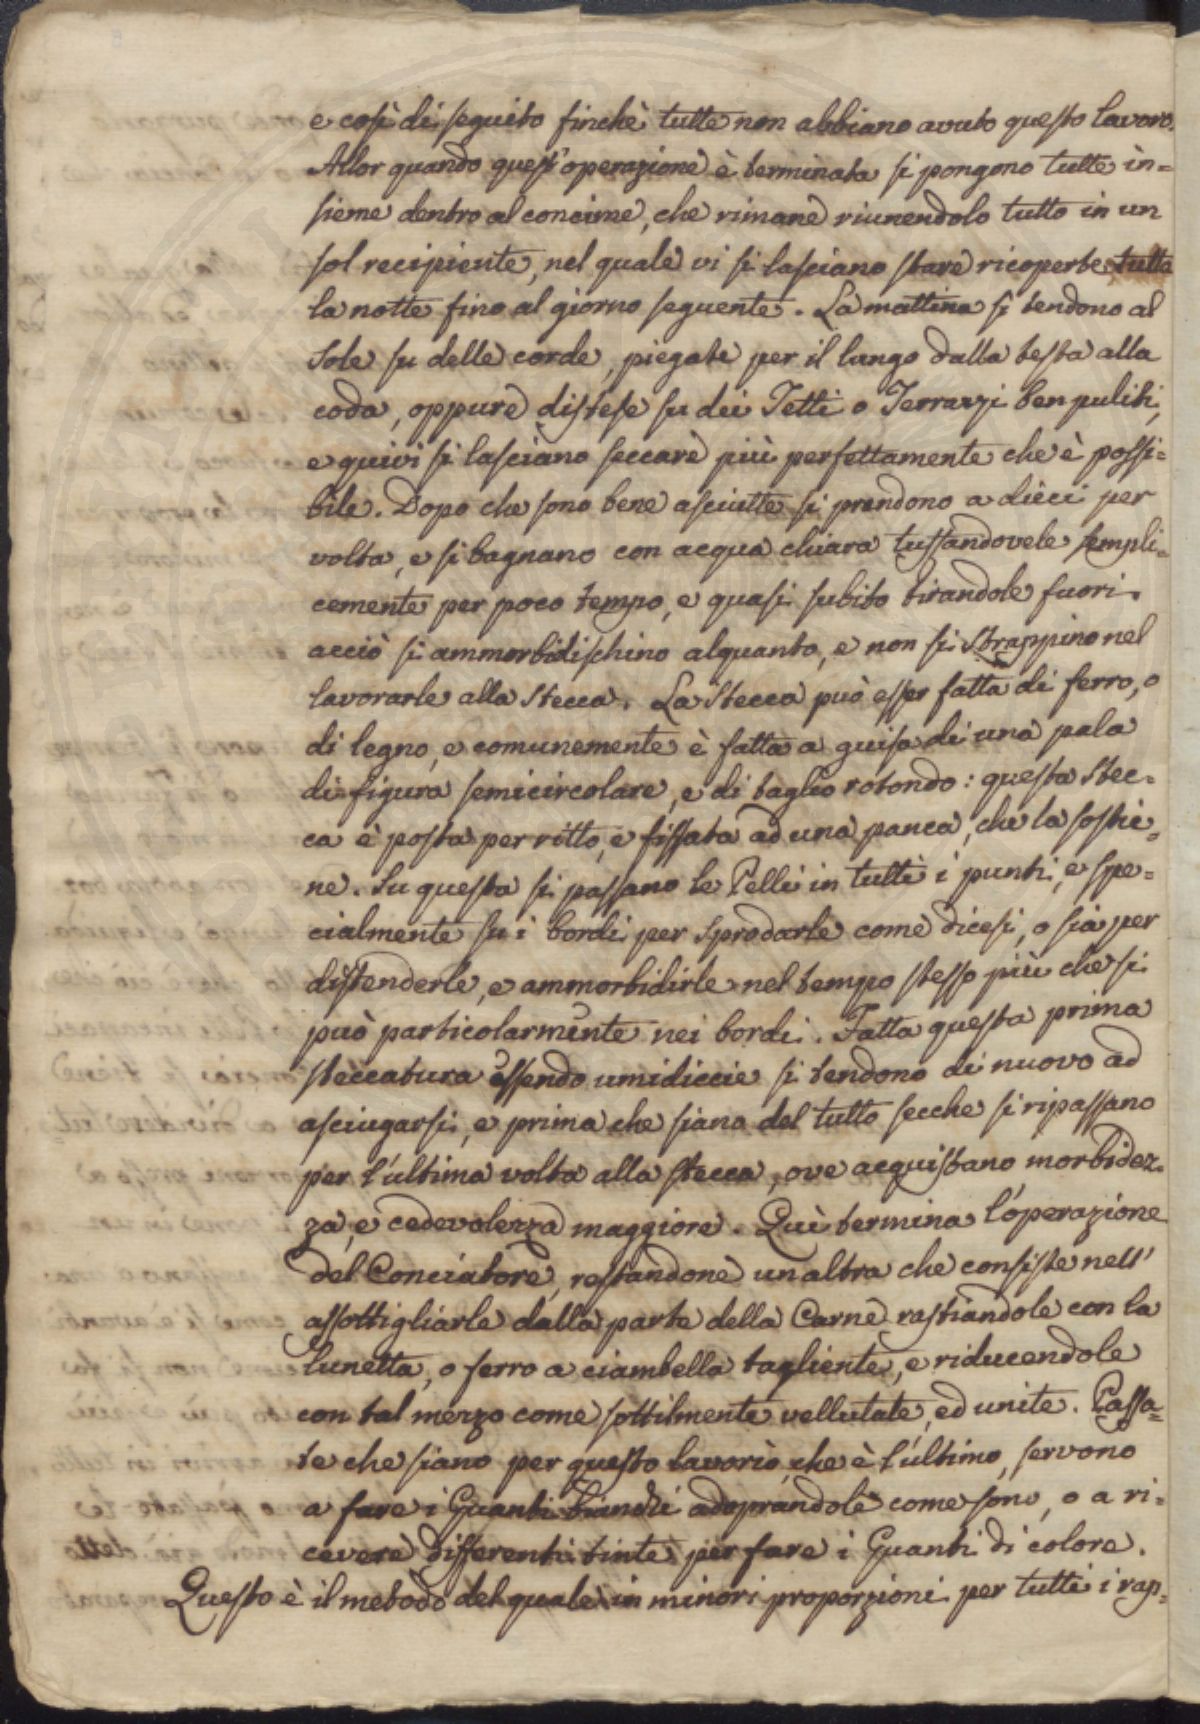 e così di seguito finchè tutte non abbiano avuto questo lavoro.
Allor quando quest'operazione è terminata si pongono tutte in=
sieme dentro al concime, che rimane riunendolo tutto in un
sol recipiente, nel quale vi si lasciano stare ricoperte tutta
la notte fino al giorno seguente. La mattina si tendono al
Sole su delle corde, piegate per il lungo dalla testa alla
coda, oppure distese su dei Tetti o Terrazzi ben puliti,
e quivi si lasciano seccare più perfettamente che è possi=
bile. Dopo che sono bene asciutte si prendono a dieci per
volta, e si bagnano con acqua chiara tuffandovele sempli=
cemente per poco tempo, e quasi subito tirandole fuori.
acciò si ammorbidischino alquanto, e non si strappino nel
lavorarle alla Stecca. La Stecca può esser fatta di ferro, o
di legno, e comunemente è fatta a guisa di una pala
di figura semicircolare, e di taglio rotondo: questa Stec=
ca è posta per ritto, e fissata ad una panca, che la sostie=
ne. Su questa si passano le Pelli in tutti i punti, e spe=
cialmente su i bordi per sprodarle come dicesi, o sia per
distenderle, e ammorbidirle nel tempo stesso più che si
può particolarmente nei bordi. Fatta questa prima
steccatura essendo umidiccie si tendono di nuovo ad
asciugarsi, e prima che siano del tutto secche si ripassano
per l'ultima volta alla stecca, ove acquistano morbidez=
za, e cedevolezza maggiore. Quì termina l'operazione
del Conciatore, restandone un altra che consiste nell'
assottigliarle dalla parte della Carne rastiandole con la
lunetta, o ferro a ciambella tagliente, e riducendole
con tal mezzo come sottilmente vellutate, ed unite. Passa=
te che siano per questo lavorio, che è l'ultimo, servono
a fare i Guanti bianchi adoprandole come sono, o a ri=
cevere differenti tinte per fare i Guanti di colore.
Questo è il metodo del quale in minori proporzioni per tutti i rap=